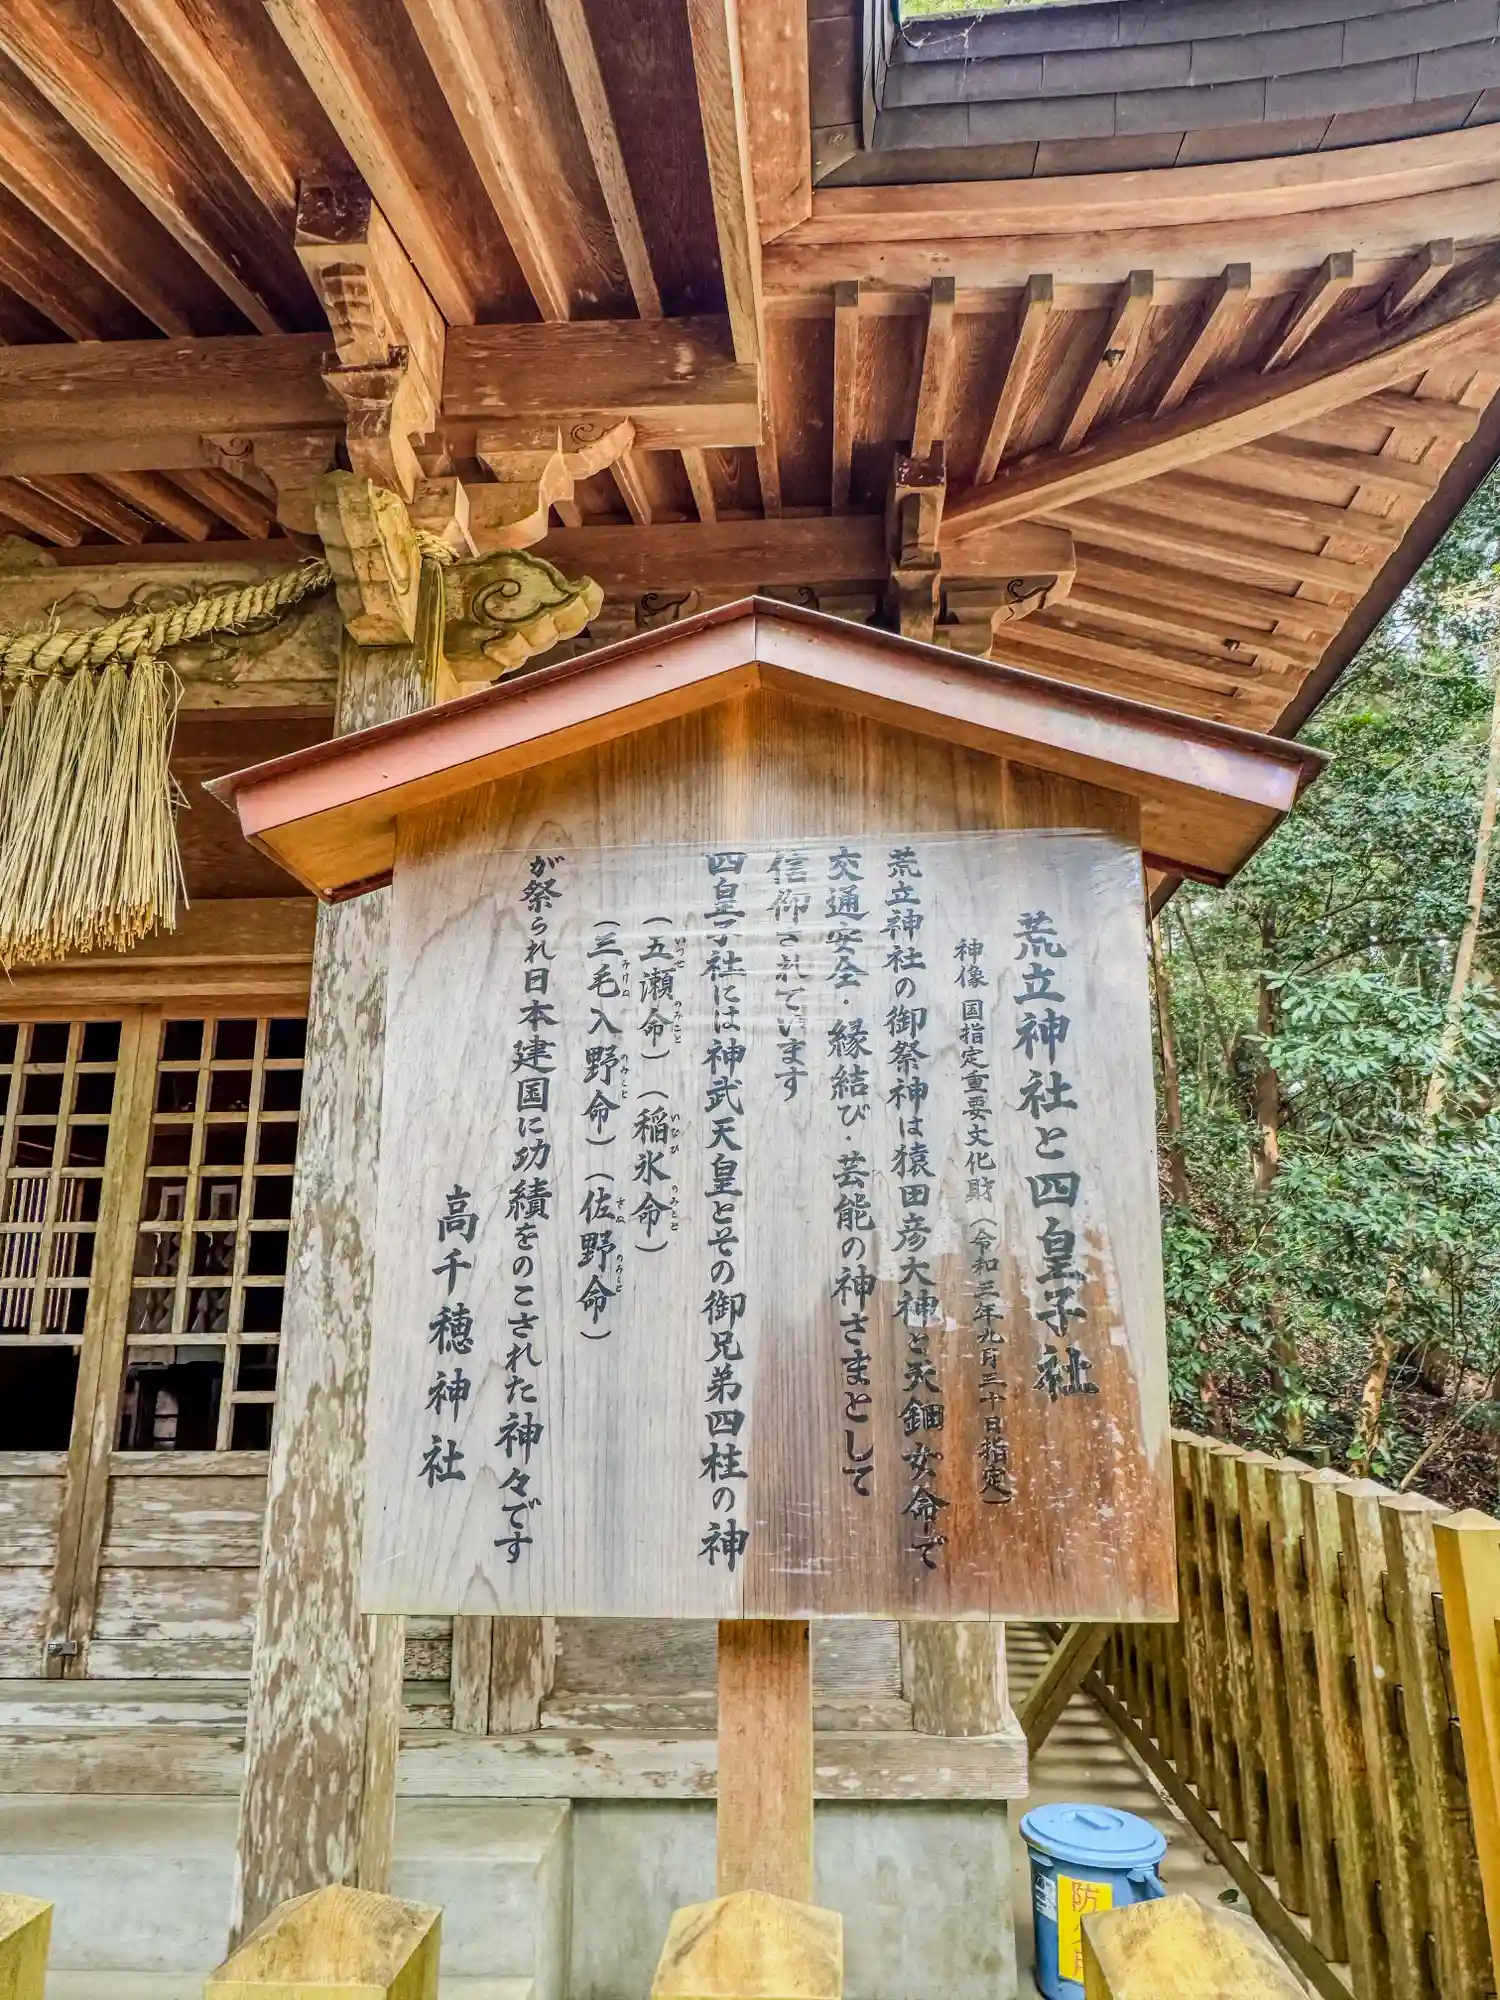 荒立神社と四皇子社
神像 国指定重要文化財（令和三年九月三十日指定）
荒立神社の御祭神は猿田彦大神と天鈿女命で
交通安全・縁結び・芸能の神さまとして
信仰されています
四皇子社には神武天皇とその御兄弟四柱の神
（五瀬命）（稲氷命）
いつせ のみこと いなひ のみこと
（三毛入野命）（佐野命）
みけぬ のみこと さぬ のみこと
が祭られ日本建国に功績をのこされた神々です
高千穂神社
防
用